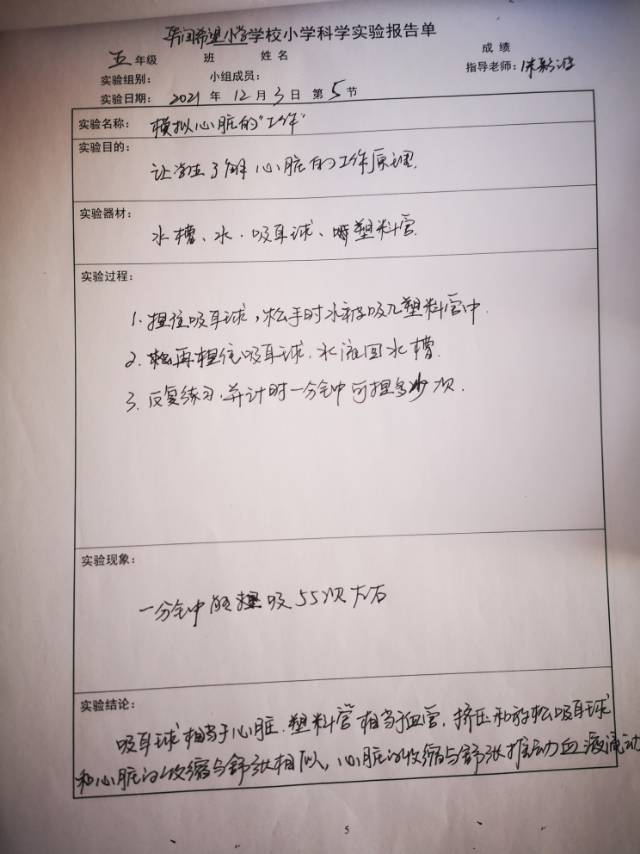 希望小学学校小学科学实验报告单
五年级 班 姓名 成绩
实验组别: 小组成员: 指导老师:
实验日期: 2021年12月3日 第5节
实验名称: 模拟心脏的"工作"
实验目的:
让学生了解心脏的工作原理.
实验器材:
水槽、水、吸耳球、塑料管
实验过程:
1. 捏住吸耳球,松手时水被吸入塑料管中.
2. 再捏住吸耳球.水流回水槽.
3. 反复练习.并计时一分钟可捏多少次.
实验现象:
一分钟能捏吸55次左右
实验结论:
吸耳球相当于心脏.塑料管相当于血管.挤压和放松吸耳球
和心脏的收缩与舒张相似,心脏的收缩与舒张推动血液流动
5